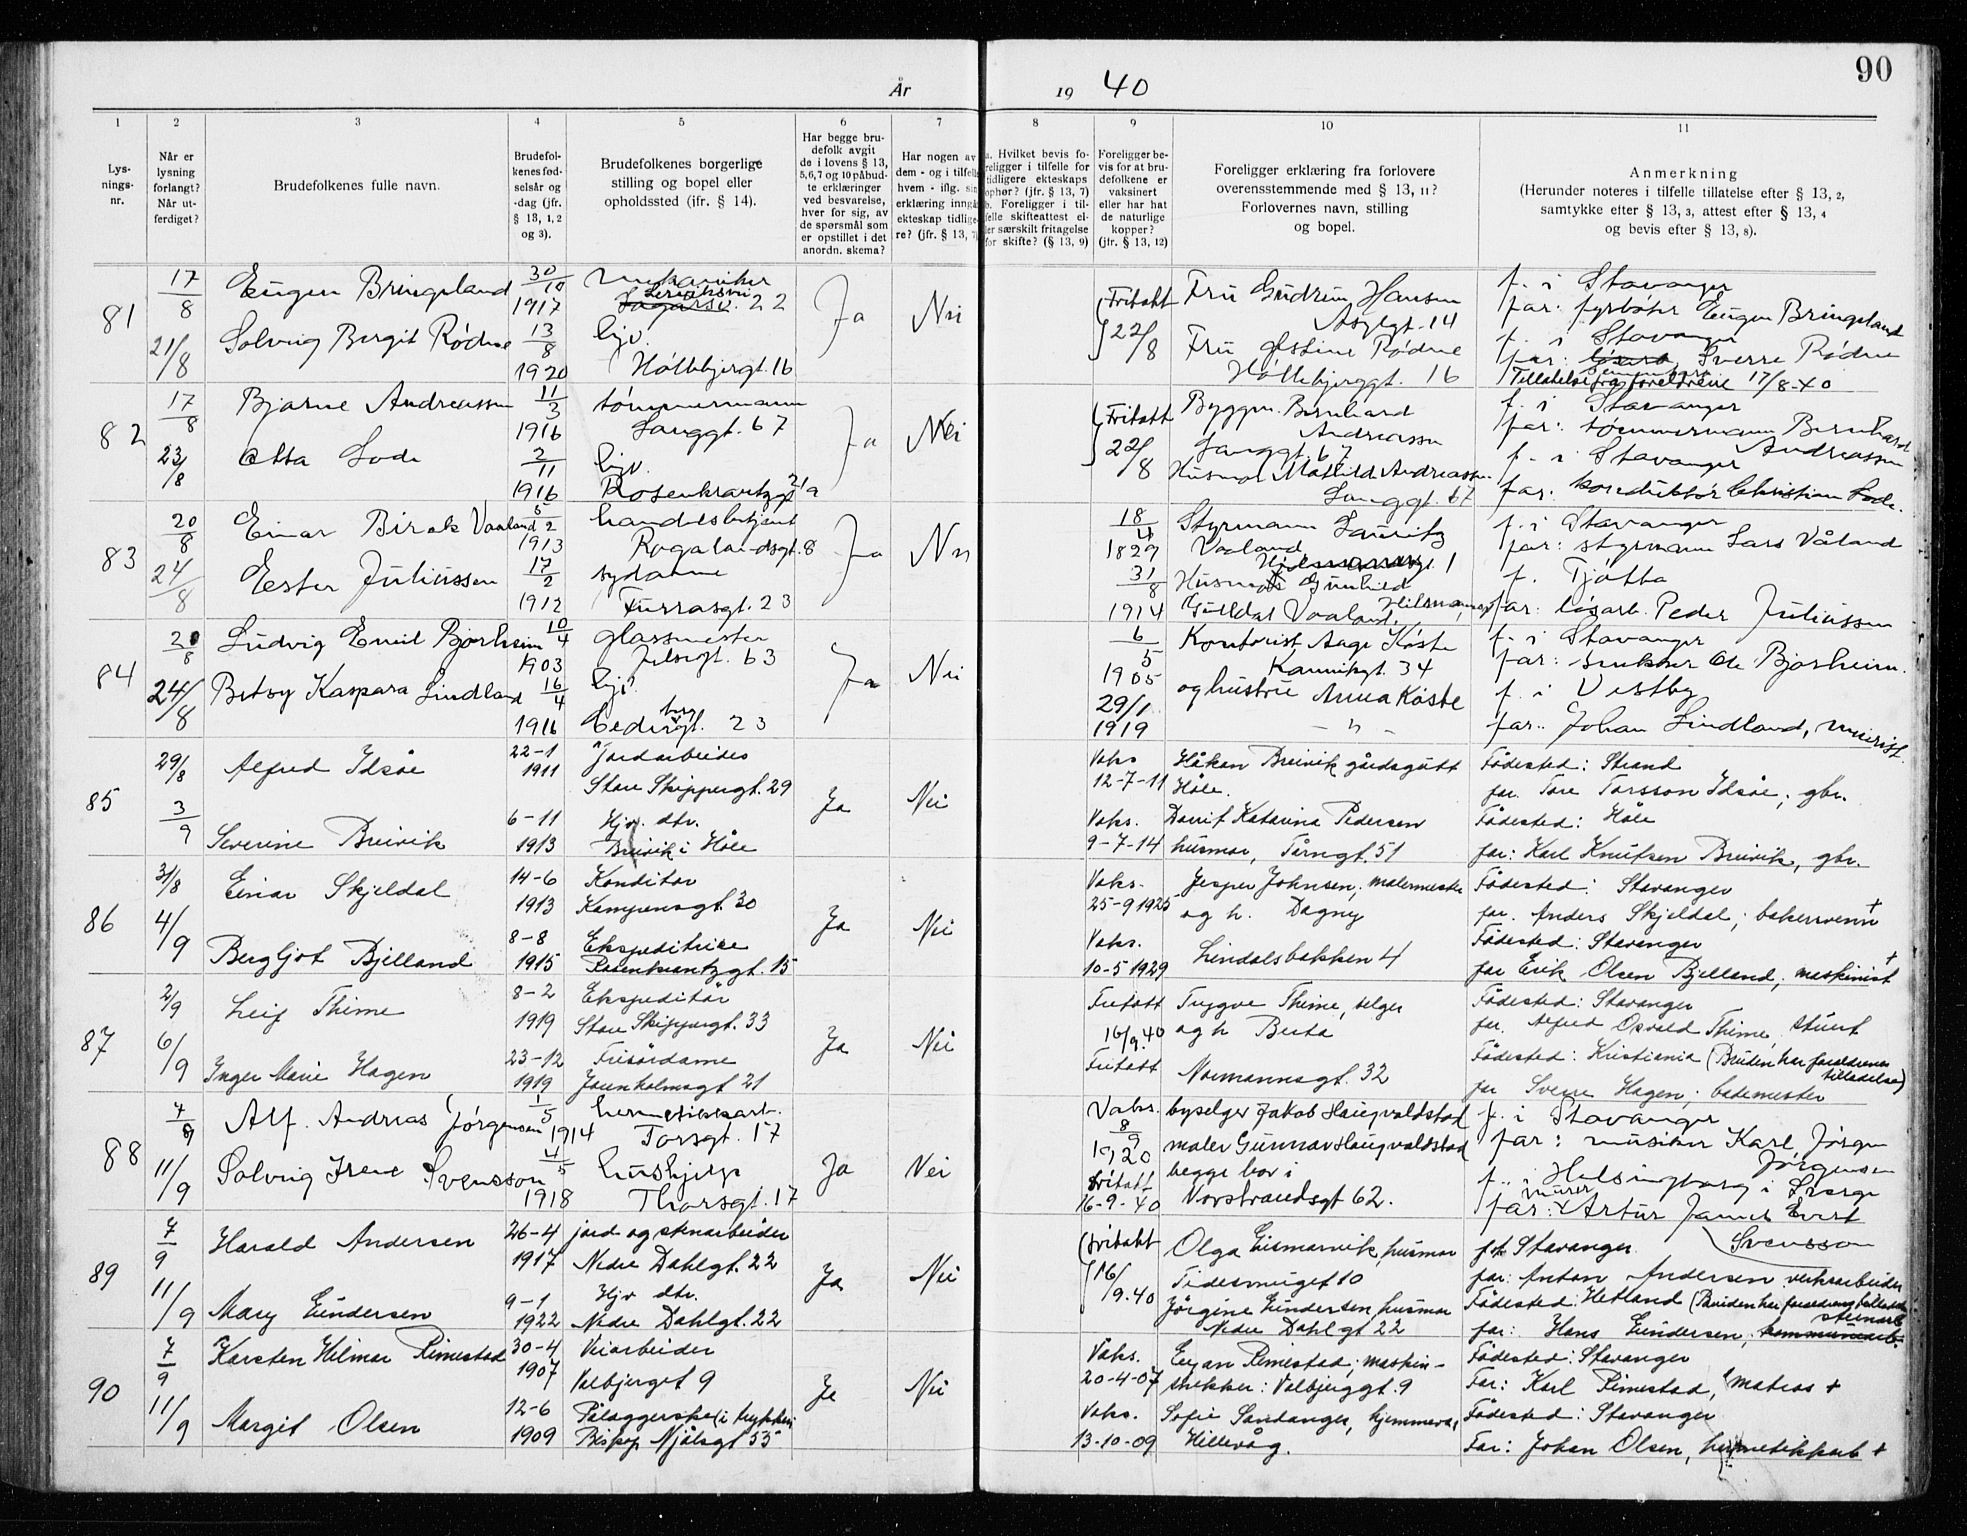 90
År 19 40
1 2 3 4 5 6 7 8 9 10 11
Lys-
nings-
nr.
Når er
lysning
forlangt?
Når ut-
ferdiget?
Brudefolkenes fulle navn.
Brudefol-
kenes fød-
selsår og
-dag (jfr.
§ 13, 1, 2
og 3).
Brudefolkenes borgerlige
stilling og bopel eller
opholdssted (ifr. § 14).
Har begge bru-
defolk avgit
de i lovens § 13,
5,6,7 og 10 påbud-
te erklæringer
ved besvarelse,
hver for sig, av
de spørsmål som
er opstillet i det
anordn. skema?
Har nogen av
dem - og i tilfelle
hvem - iflg. sin
erklæring inngå
ekteskap tidlige-
re? (jfr. § 13, 7)
a. Hvilket bevis fo-
religger i tilfelle for
tidligere ekteskaps
ophør? (jfr. § 13, 7)
b. Foreligger i til-
felle skifteattest el-
ler særskilt fritagelse
for skifte? (§ 13, 9)
Foreligger be-
vis for at bru-
defolkene er
vaksinert
eller har hat
de naturlige
kopper?
(jfr. § 13, 12)
Foreligger erklæring fra forlovere
overensstemmende med § 13, 11?
Forlovernes navn, stilling
og bopel.
Anmerkning
(Herunder noteres i tilfelle tillatelse efter § 13, 2,
samtykke efter § 13, 3, attest efter § 13, 4
og bevis efter § 13, 8).
81
17/8
21/8
Eugen Bringeland
Solveig Bergit Rødne
30/10
1917
13/8
1920
mekaniker
22
hjv.
Høllebjergt. 16
Ja
Nei
Fritatt
22/8
Fru Gudrun Hansen
Asylgt. 14
Fru Østine Rødne
Høllebjerggt. 16
f. i Stavanger
far: fyrbøter Eugen Bringeland
f. i Stavanger
far: Sverre Rødne
Tillatelse fra foreldrene 17/8-40
82
17/8
23/8
Bjarne Andreassen
Lode
11/3
1916
2/11
1916
tømmermann
Langgt. 67
hjv.
Rosenkrantzgt 21a
Ja
Nei
Fritatt
22/8
Byggm. Bernhard
Andreassen
Langgt. 67
Husmor Mathild Andreassen
Langgt. 67
f. i Stavanger
far: tømmermann Bernhard
Andreassen
f. i Stavanger
far: konduktør Christian Lode.
83
20/8
24/8
Einar Birok Vaaland
Ester Juliussen
5/2
1913
17/2
1912
handelsbetjent
Rogalandsgt. 8
sydame
Furrasgt. 23
Ja
Nei
18/4
1829
31/8
1914
Styrmann Lauritz
Vaaland
Husmor Gunhild
Gulldal Vaaland,
f. i Stavanger
far: styrmann Lars Våland
f. Tjøtta
far: løsarb. Peder Juliussen
84
20/8
24/8
Ludvig Emil Bjorheim
Betsy Kaspara Lindland
10/4
1903
16/4
1916
glassmester
Jelsagt. 63
hjv.
Cederbergt. 23
Ja
Nei
6/5
1905
29/1
1919
Kontorist Aage Køste
Kannikgt. 34
og hustru Anna Køste
– " –
f. i Stavanger
far: snekker Ole Bjorheim.
f. i Vestby
far: Johan Lindland, maskinist.
85
29/8
3/9
Alfred Idsøe
Severine Breivik
22-1
1911
6-11
1913
Jordarbeider
Store Skippergt. 29
Hjv. dtr.
Breivik i Høle
Ja
Nei
Vaks
12-7-11
Vaks.
9-7-14
Håkon Breivik gårdsgutt
Høle.
Dorrit Katarina Pedersen
husmor, Tårngt. 51
Fødested: Strand
far. Tore Torsson Idsøe; gbr.
Fødested: Høle
far: Karl Knutsen Breivik, gbr.
86
31/8
4/9
Einar Skjeldal
Bergljot Bjelland
14-6
1913
8-8
1915
Konditor
Kampensgt. 30
Ekspeditrice
Rosenkrantzgt. 15
Ja
Nei
Vaks.
25-9 1925
Vaks.
10-5 1929
Jesper Johnsen; malermester
og h. Dagny
Lindalsbakken 4
Fødested: Stavanger
far. Anders Skjeldal; bakersvenn +
Fødested: Stavanger
far Erik Olsen Bjelland; maskinist +
87
2/9
6/9
Leif Thime
Inger Marie Hagen
8-2
1919
23-12
1919
Ekspeditør
Store Skippergt. 33
Frisørdame
Jorenholmsgt 21
Ja
Nei
Fritatt
16/9.40
Fritatt
Tryggve Thime, selger
og h Berta
Normannsgt. 32
Fødested: Stavanger
far. Alfred Osvald Thime, stuert
Fødested: Kristiania (Bruden har foreldrenes
tilladelse)
far Sverre Hagen; bademester
88
7/9
11/9
Alf. Andreas Jørgensen
Solveig Irene Svensson
1/5
1914
4/5
1918
hermetikkarb.
Torsgt. 17
hushjelp
Thorsgt. 17
Ja
Nei
Vaks.
8/9
1920
Fritatt
16-9-40
byselger Jakob Haugvaldstad
maler Gunnar Haugvaldstad
begge bor i
Vorstrandsgt 62.
f. i Stavanger
far: musiker Karl Jørgen
Jørgensen
f. i Helsingborg i Sverge
far: murer Artur James Evert
Svensson
89
7/9
11/9
Harald Andersen
Mary Gundersen
26-4
1917
9-1
1922
jord og stenarbeider
Nedre Dahlgt. 22
Hjv dtr.
Nedre Dahlgt. 22
Ja
Nei
Fritatt
16/9.40
Olga Lismarvik, husmor
Tidesmuget 10
Jørgine Gundersen, husmor
Nedre Dahlgt 22
Stavanger.
far: Anton Andersen verksarbeider
Fødested: Hetland (Bruden har foreldrenes tilladelse
stenarb.
far: Hans Gundersen; kommunearb.
90
7/9
11/9
Karsten Hilmar Rimestad
Margit Olsen
30-4
1907
12-6
1909
Veiarbeider
Valbjerget 9
Påleggerske (i trykkeri
Biskop Njålsgt 55
Ja
Nei
Vaks.
20-4-07
Vaks.
13-10-09
Rimestad; maskin-
trekker: Valbjerggt. 9
Sofie Sandanger, hjemmev.,
Hillevåg.
Fødested: Stavanger
Far: Karl Rimestad, matros +
Fødested: Stavanger
Far: Johan Olsen, hermetikkarb +